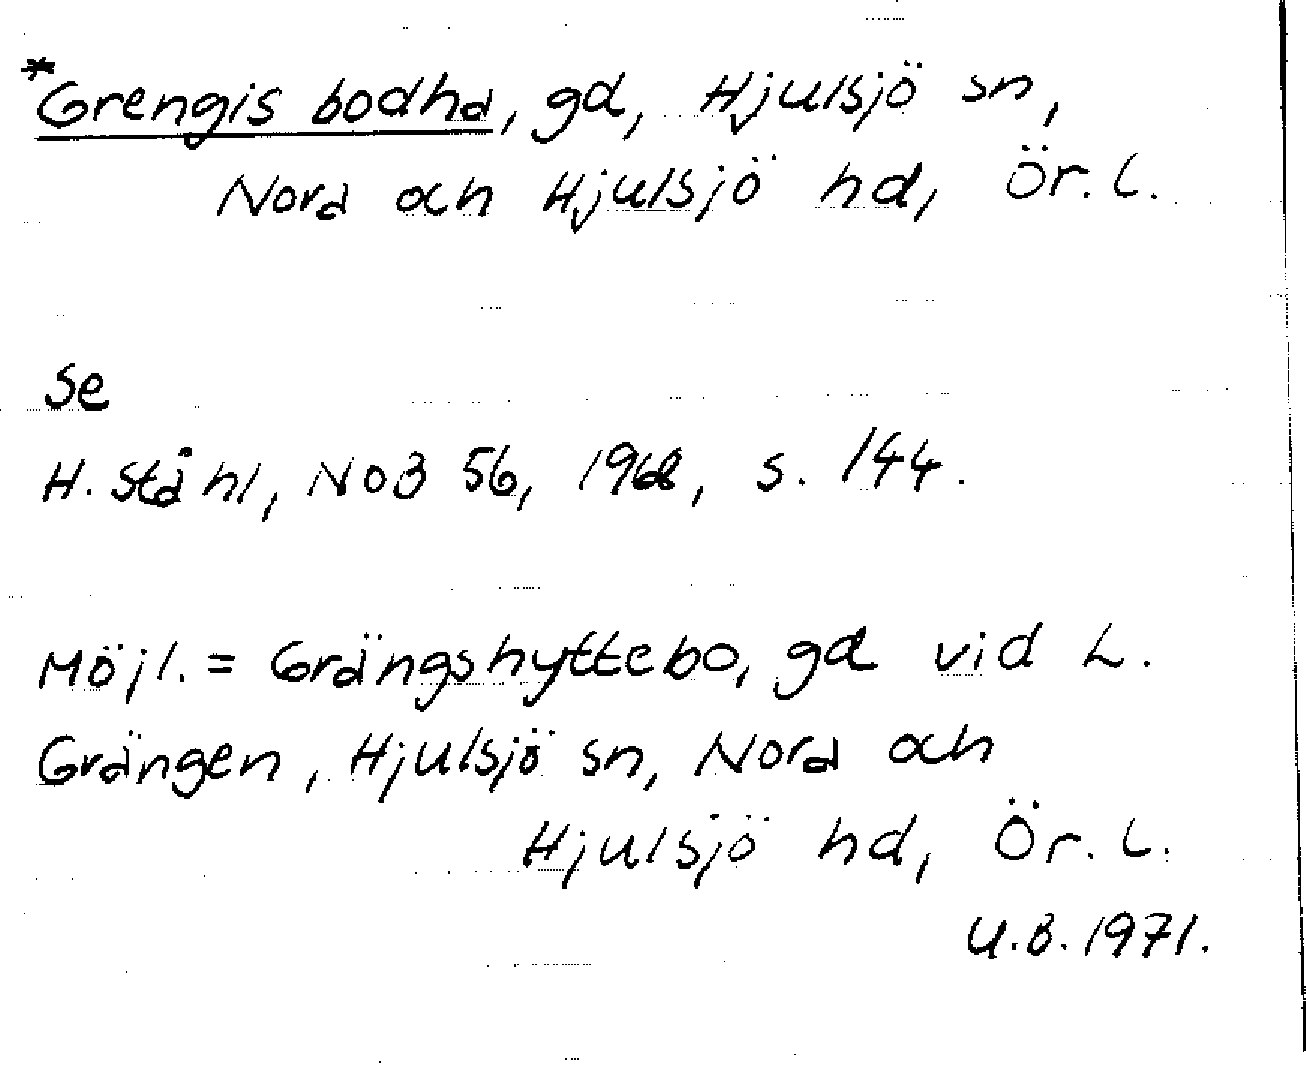 *Grengis bodha, gd, Hjulsjö sn,
Nora och Hjulsjö hd, Ör. l.
Se
H. Ståhl, NoB 56, 1968, s. 144.
Möjl. = Grängshyttebo, gd vid L.
Grängen, Hjulsjö sn, Nora och
Hjulsjö hd, Ör. l.
U.B. 1971.